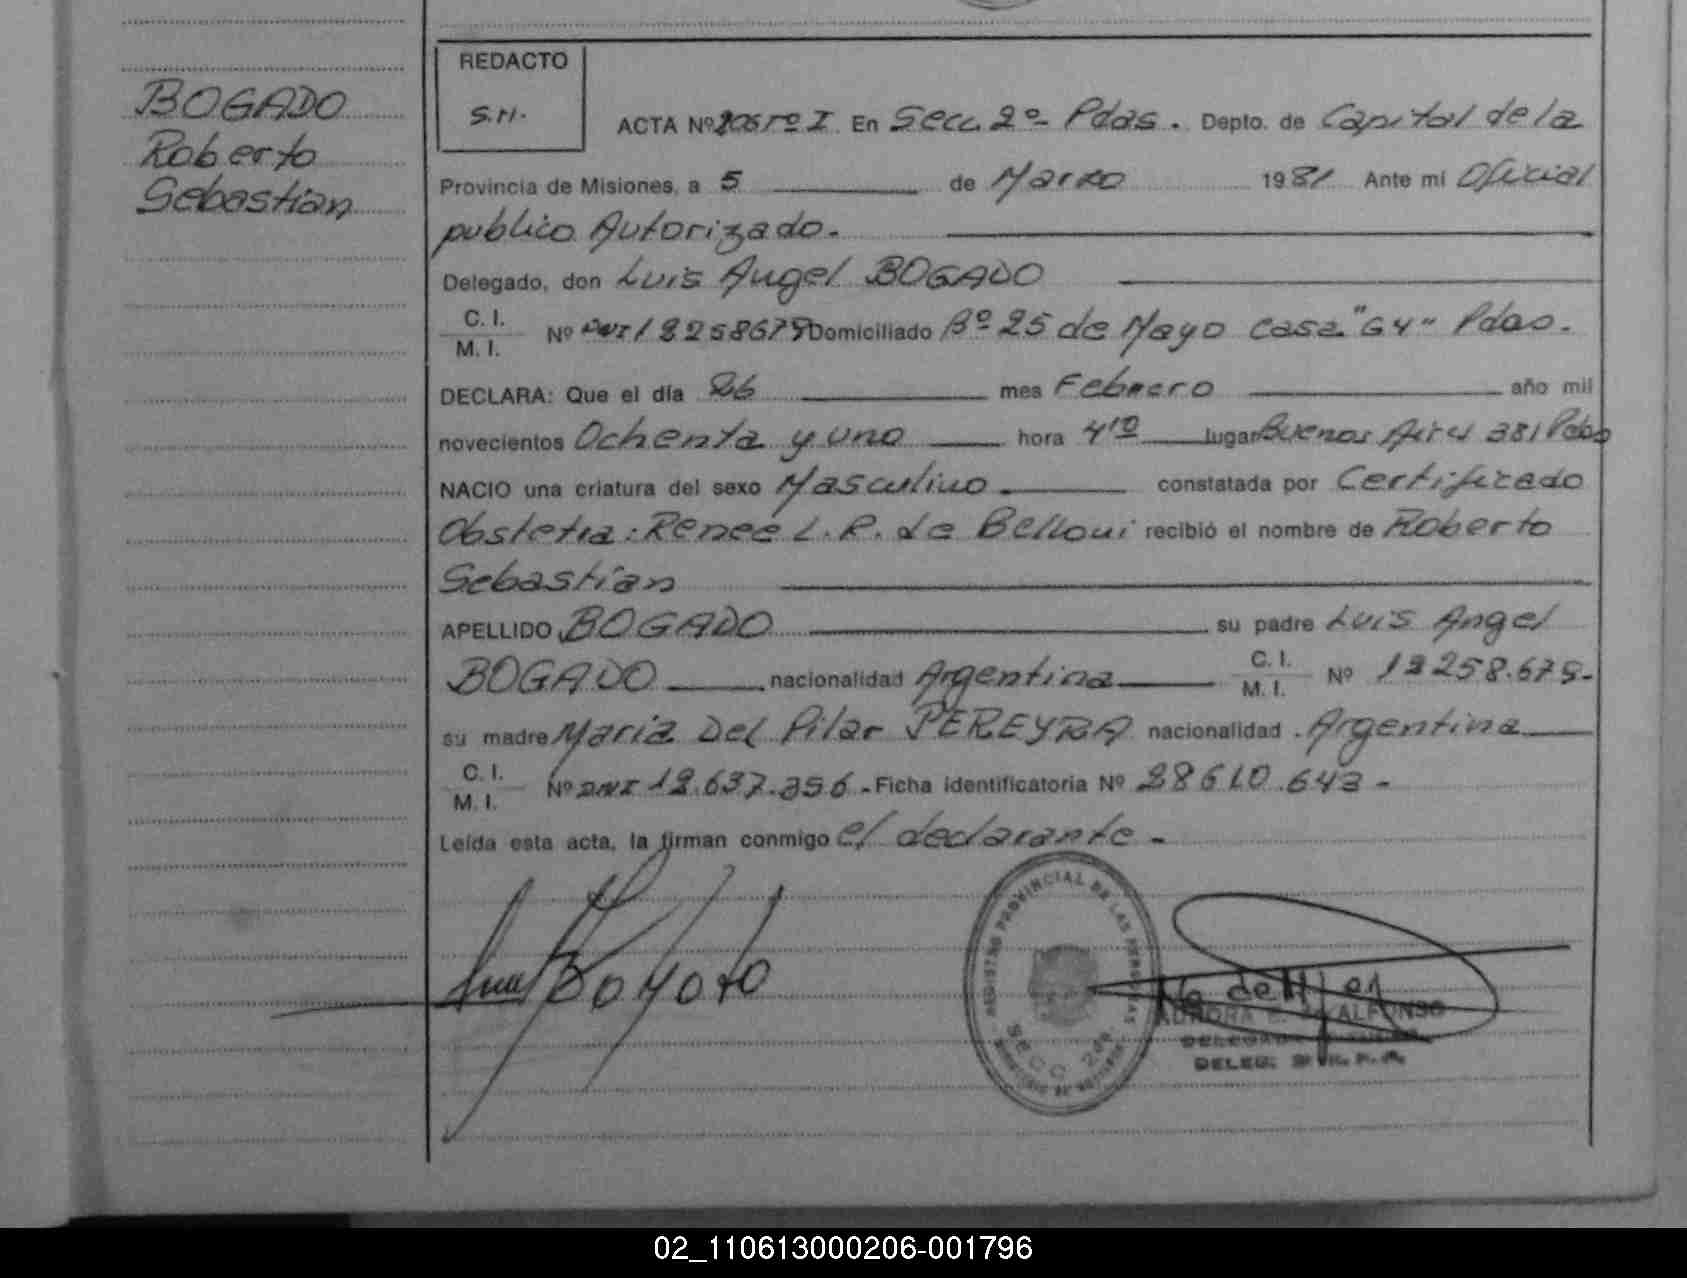 BOGADO
Roberto
Sebastián
REDACTO
S.H.
ACTA Nº 206 Tº I En Secc. 2º Pdas. Depto. de Capital de la
Provincia de Misiones, a 5 de Marzo 1981 Ante mi Oficial
publico Autorizado.
Delegado, don Luis Angel BOGADO
C. I.
M. I. Nº DNI Domiciliado Bº 25 de Mayo casa "G4" Pdas.
DECLARA: Que el día 26 mes Febrero año mil
novecientos Ochenta y uno hora 4 10 lugar Buenos Aires 381 Pdas
NACIO una criatura del sexo Masculino constatada por Certificado
Obstetra: Renee L. R. de Belloni recibió el nombre de Roberto
Sebastián
APELLIDO BOGADO su padre Luis Angel
BOGADO nacionalidad Argentina C. I.
M. I. Nº
su madre Maria Del Pilar PEREYRA nacionalidad Argentina
C. I.
M. I. Nº DNI Ficha identificatoria Nº 28610.643-
Leída esta acta, la firman conmigo el declarante -
REGISTRO PROVINCIAL DE LAS PERSONAS
SECC. 2da
ALFONSO
02_110613000206-001796